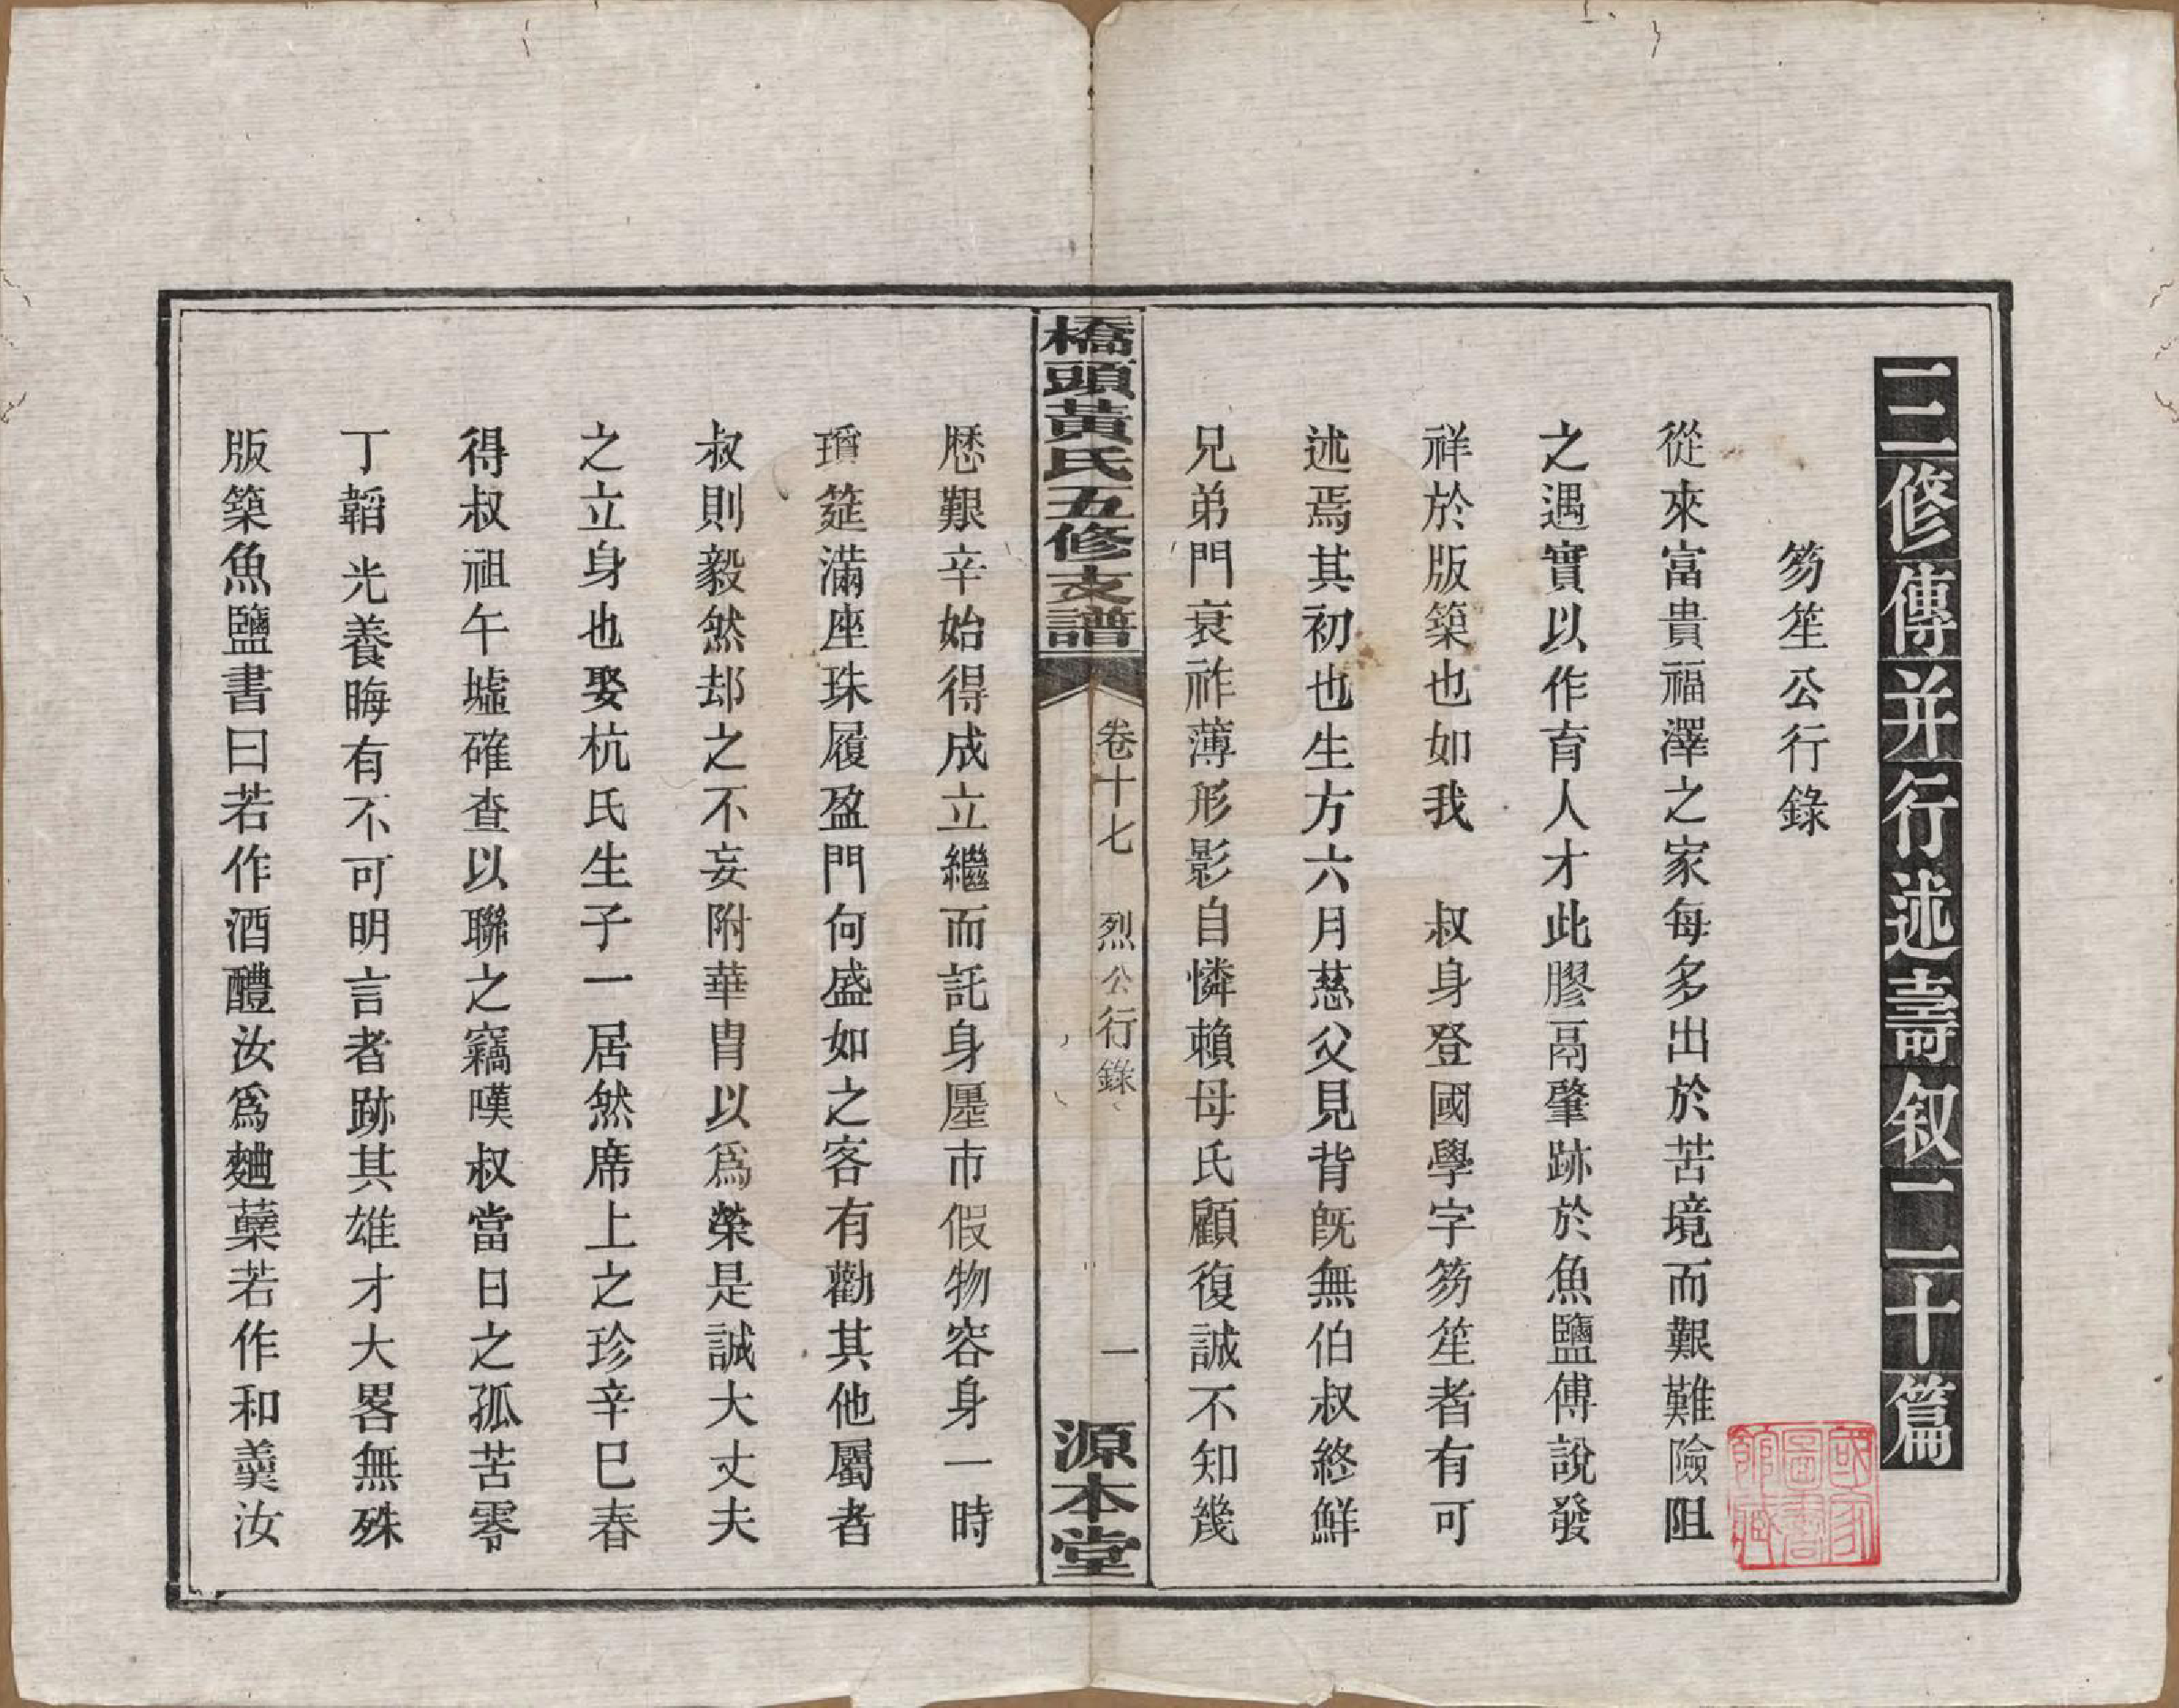 三修傳并行述壽叙二十篇
笏笙公行錄
從來富貴福澤之家每多出於苦境而艱難險阻
之遇實以作育人才此膠鬲肇跡於魚鹽傅說發
祥於版築也如我　叔身登國學字笏笙者有可
述焉其初也生方六月慈父見背旣無伯叔終鮮
兄弟門衰祚薄形影自憐賴母氏顧復誠不知幾
橋頭黃氏五修支譜
卷十七　烈公行錄
一
源本堂
歷艱辛始得成立繼而託身廛市假物容身一時
瓊筵滿座珠履盈門何盛如之客有勸其他屬者
叔則毅然却之不妄附華胄以爲榮是誠大丈夫
之立身也娶杭氏生子一居然席上之珍辛巳春
得叔祖午墟確查以聯之竊嘆叔當日之孤苦零
丁韜光養晦有不可明言者跡其雄才大畧無殊
版築魚鹽書曰若作酒醴汝爲麯蘖若作和羹汝
國家圖書館藏